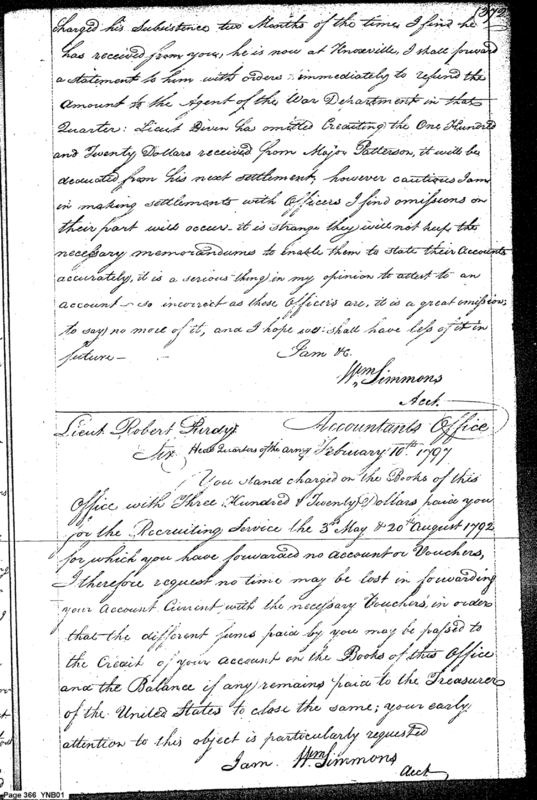 1372
charged his Subsistence two Months of the time, I find he
has received from you, he is now at Knoxville, I shall forward
a statement to him with orders immediately to refund the
amount to the Agent of the War Department in that
Quarter: Lieut Diven has omitted Crediting the One Hundred
and Twenty Dollars received from Major Patterson, it will be
deducted from his next settlement, however cautious I am
in making settlements with Officers I find omissions on
their part will occur - it is strange they will not keep the
necessary memorandums to enable them to state their Accounts
accurately, it is a serious thing in my opinion to attest to an
account - so incorrect as those Officers are, it is a great omission,
to say no more of it, and I hope we shall have less of it in
future - I am &c.
Wm Simmons
Acct.
Lieut Robert Purdy Accountants Office
Sir Head Quarters of the army February 10th 1797
You stand charged on the Books of this
Office with Three Hundred & Twenty Dollars paid you
for the Recruiting Service the 3d May & 20th August 1792
for which you have forwarded no account or Vouchers,
I therefore request no time may be lost in forwarding
your Account Current with the necessary Vouchers, in order
that the different sums paid by you may be passed to
the Credit of your account on the Books of this Office
and the Balance if any remains paid to the Treasurer
of the United States to close the same; your early
attention to this object is particularly requested
I am Wm Simmons
Acct
Page 366 YNB01